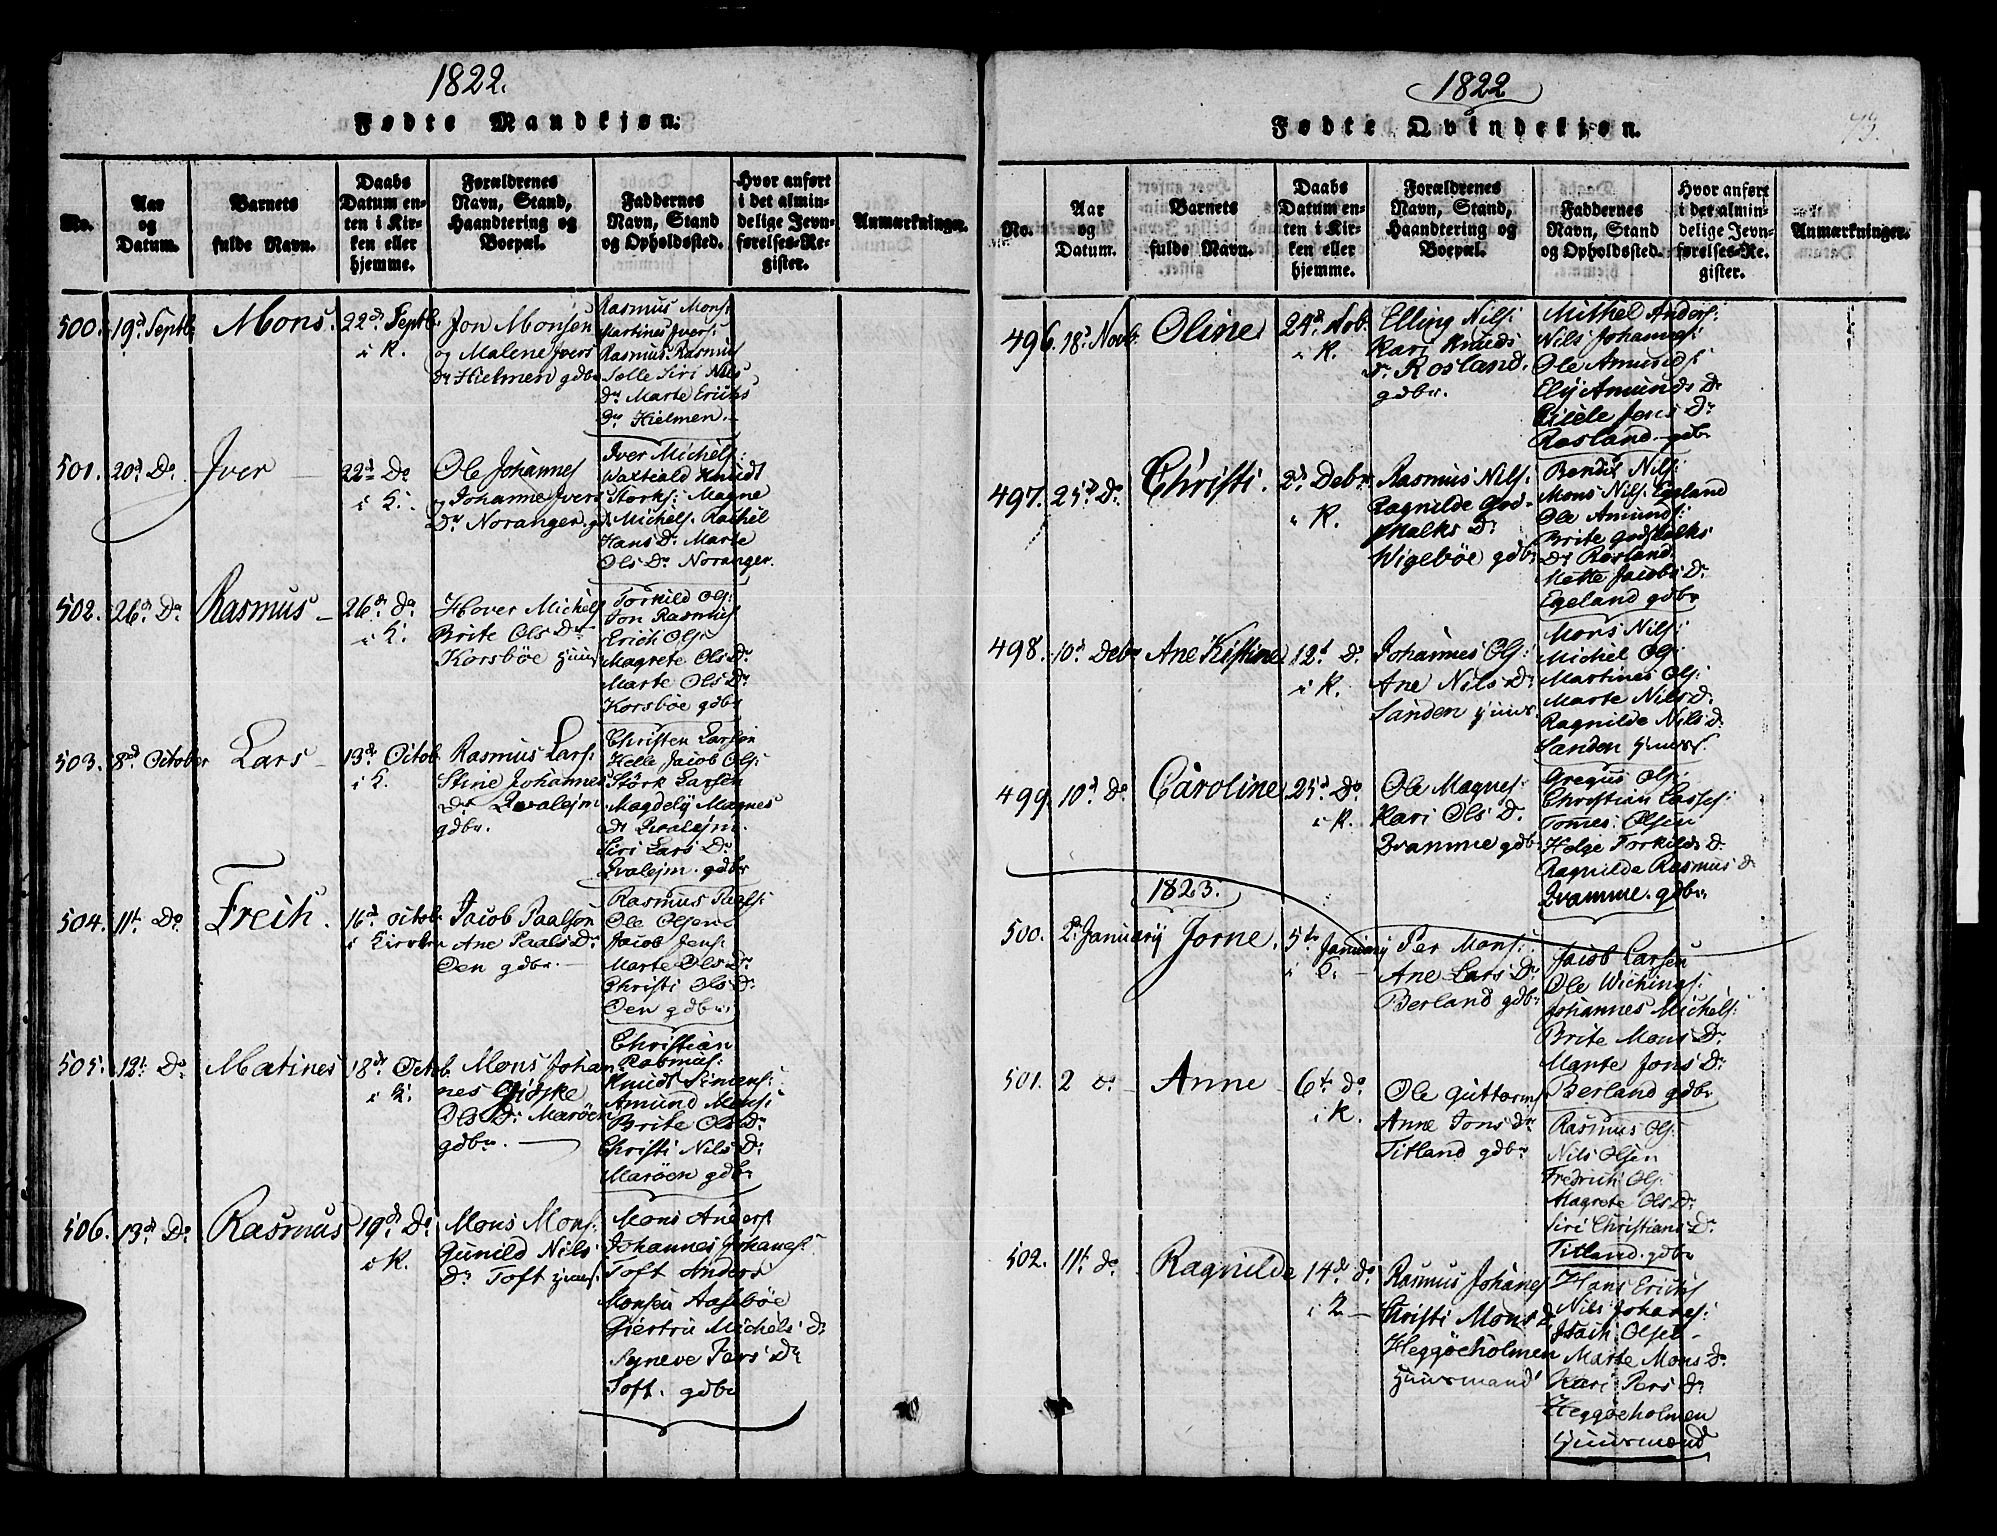 1822.
Fødte Mandkjøn.
No.
Aar
og
Datum.
Barnets
fulde Navn.
Daabs
Datum en-
ten i Kir-
ken eller
hjemme.
Forældrenes
Navn, Stand,
Haandtering og
Boepæl.
Faddernes
Navn, Stand
og Opholdssted.
Hvor anført
i det almin-
delige Jevn-
førelses-Re-
gister.
Anmærkninger.
500. 19d Septb Mons. 22d Septb.
i K.
Jon Monsen
og Malene Ivers
Dr Hielmen gdbr
Rasmus Mons:
Martines Ivers:
Rasmus Rasmus
Siri Nils
Dr Marte Erichs
Dr Hielmen.
501. 20d Do Iver 22d Do
i K.
Ole Johannes
og Johanne Ivers
Dr Noranger. gd.
Iver Michels:
Knudt
Storks: Magne
Michels. Rachel
Hans Dr Marte
Ols Dr Noranger.
502. 26d Do Rasmus 26d do
i K.
Hover Michels
Brite Ols Dr
Korsbøe
Torkild Ols:
Jon Rasmus
Erich Ols:
Magrete Ols Dr
Marte Ols Dr
Korsbøe gdbr
503. 8d October Lars 13d Octob.
i K.
Rasmus Lars:
Stine Johannes
Dr Qvalejm
gdbr.
Christen Larsen
Helle Jacob Ols:
Størk Larsen
Magdely Magnes
Dr Qvalejm.
Siri Lars Dr
Qvalejm. gdbr
504. 11t Do Freih. 16d Octob
i Kircken
Jacob Paalsen
Ane Paals Dr
Oen gdbr.
Rasmus Paals:
Ole Olsen
Jacob Jens:
Marte Ols Dr
Christi Ols Dr
Oen gdbr
505. 12t Do Matines 18d Octob
i K.
Mons Johan
nes Gidske
Ols Dr Marøen
gdbr.
Christian
Rasmus:
Knudt Simens:
Amund Mons:
Brite Ols Dr
Christi Nils Dr
Marøen gdbr
506. 13d Do Rasmus 19d Do
i K.
Mons Mons:
Gunild Nils
Dr Toft
Mons Anders
Johannes Johanes:
Toft Anders
Monsen Aasebøe
Giertru Michels Dr
Syneve Pers Dr
Toft. gdbr
1822
Fødte Qvindekjøn.
73.
No.
Aar
og
Datum.
Barnets
fulde Navn.
Daabs
Datum en-
ten i Kir-
ken eller
hjemme.
Forældrenes
Navn, Stand,
Haandtering og
Boepæl.
Faddernes
Navn, Stand
og Opholdssted.
Hvor anført
i det almin-
delige Jevn-
førelses-Re-
gister.
Anmærkninger.
496. 18d Novb. Oline 24d Nob.
i K.
Elling Nils:
Kari Knuds
Dr Rosland.
gdbr.
Mithel Anders:
Nils Johannes:
Ole Amunds
Ely Amunds Dr
Jens Dr
Rosland. gdbr
497. 25d Do. Christi. 2d Debr.
i K.
Rasmus Nils:
Ragnilde God-
skalks Dr
Wigebøe gdbr
Bendix Nils:
Mons Nils: Egeland
Ole Amunds:
Brite Godskalks
Dr Rosland.
Mette Jacobs Dr
Egeland gdbr
498. 10d Debr Ane Kistine 12d Do
i K.
Johannes Ols:
Ane Nils Dr
Sanden
Mons Nils:
Michel Ols:
Martines Ols:
Marte Nils Dr
Ragnilde Nils Dr
Sanden
499. 10d Do Caroline 25d Do
i K.
Ole Magnes:
Kari Ols Dr
Qvamme gdb.
Gregus Ols:
Christian Lasses:
Tomes Olsen
Helge Torkilds Dr
Ragnilde Rasmus Dr
Qvamme. gdbr
1823.
500. 2d January Jorne. 5te January
i K.
Per Mons:
Ane Lars Dr
Berland gdbr
Jacob Larsen
Ole Wichings:
Johannes Michels:
Brite Mons Dr
Mante Jons Dr
Berland gdbr
501. 2 do Anne 6t do
i K.
Ole Guttorms
Anne Jons Dr
Titland gdbr
Rasmus Ols:
Nils Olsen
Fredrich Ols:
Magrete Ols Dr
Siri Christians Dr
Titland. gdbr
502. 11t do Ragnilde 14d do
i K
Rasmus Johanes
Christi Mons D
Heggøeholmen
Huusmand
Hans Erichs
Nils Johanes:
Isach Olsen
Marte Mons Dr
Kari Pers Dr
Heggøeholmen
Huusmand